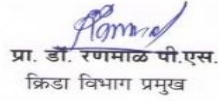 प्रा. डॉ. रणमाळ पी.एस.
क्रिडा विभाग प्रमुख